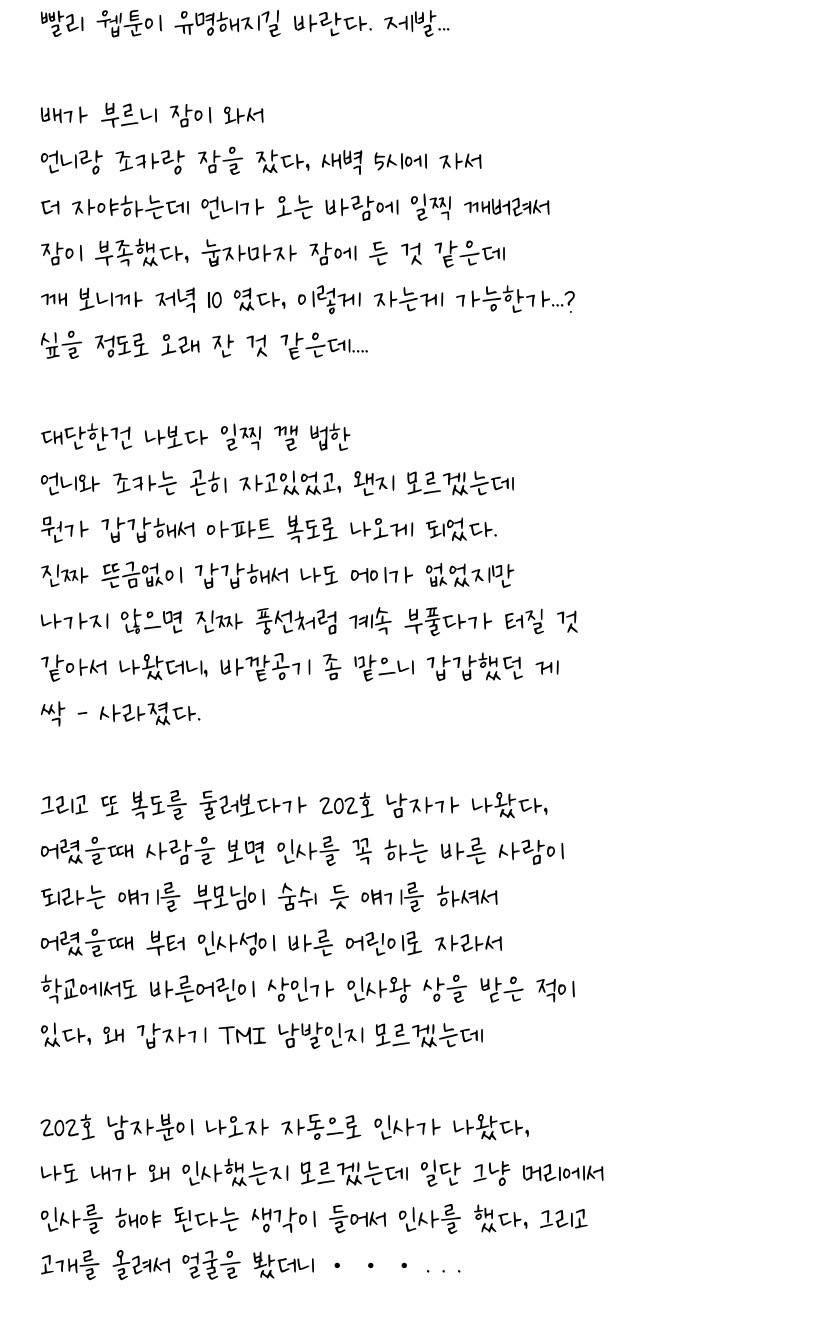 빨리 웹툰이 유명해지길 바란다. 제발...
배가 부르니 잠이 와서
언니랑 조카랑 잠을 잤다, 새벽 5시에 자서
더 자야하는데 언니가 오는 바람에 일찍 깨버려서
잠이 부족했다, 눕자마자 잠에 든 것 같은데
깨 보니까 저녁 10 였다, 이렇게 자는게 가능한가...?
싶을 정도로 오래 잔 것 같은데....
대단한건 나보다 일찍 깰 법한
언니와 조카는 곤히 자고있었고, 왠지 모르겠는데
뭔가 갑갑해서 아파트 복도로 나오게 되었다.
진짜 뜬금없이 갑갑해서 나도 어이가 없었지만
나가지 않으면 진짜 풍선처럼 계속 부풀다가 터질 것
같아서 나왔더니, 바깥공기 좀 맡으니 갑갑했던 게
싹 - 사라졌다.
그리고 또 복도를 둘러보다가 202호 남자가 나왔다,
어렸을때 사람을 보면 인사를 꼭 하는 바른 사람이
되라는 얘기를 부모님이 숨쉬 듯 얘기를 하셔서
어렸을때 부터 인사성이 바른 어린이로 자라서
학교에서도 바른어린이 상인가 인사왕 상을 받은 적이
있다, 왜 갑자기 TMI 남발인지 모르겠는데
202호 남자분이 나오자 자동으로 인사가 나왔다,
나도 내가 왜 인사했는지 모르겠는데 일단 그냥 머리에서
인사를 해야 된다는 생각이 들어서 인사를 했다, 그리고
고개를 올려서 얼굴을 봤더니 • • • . . .